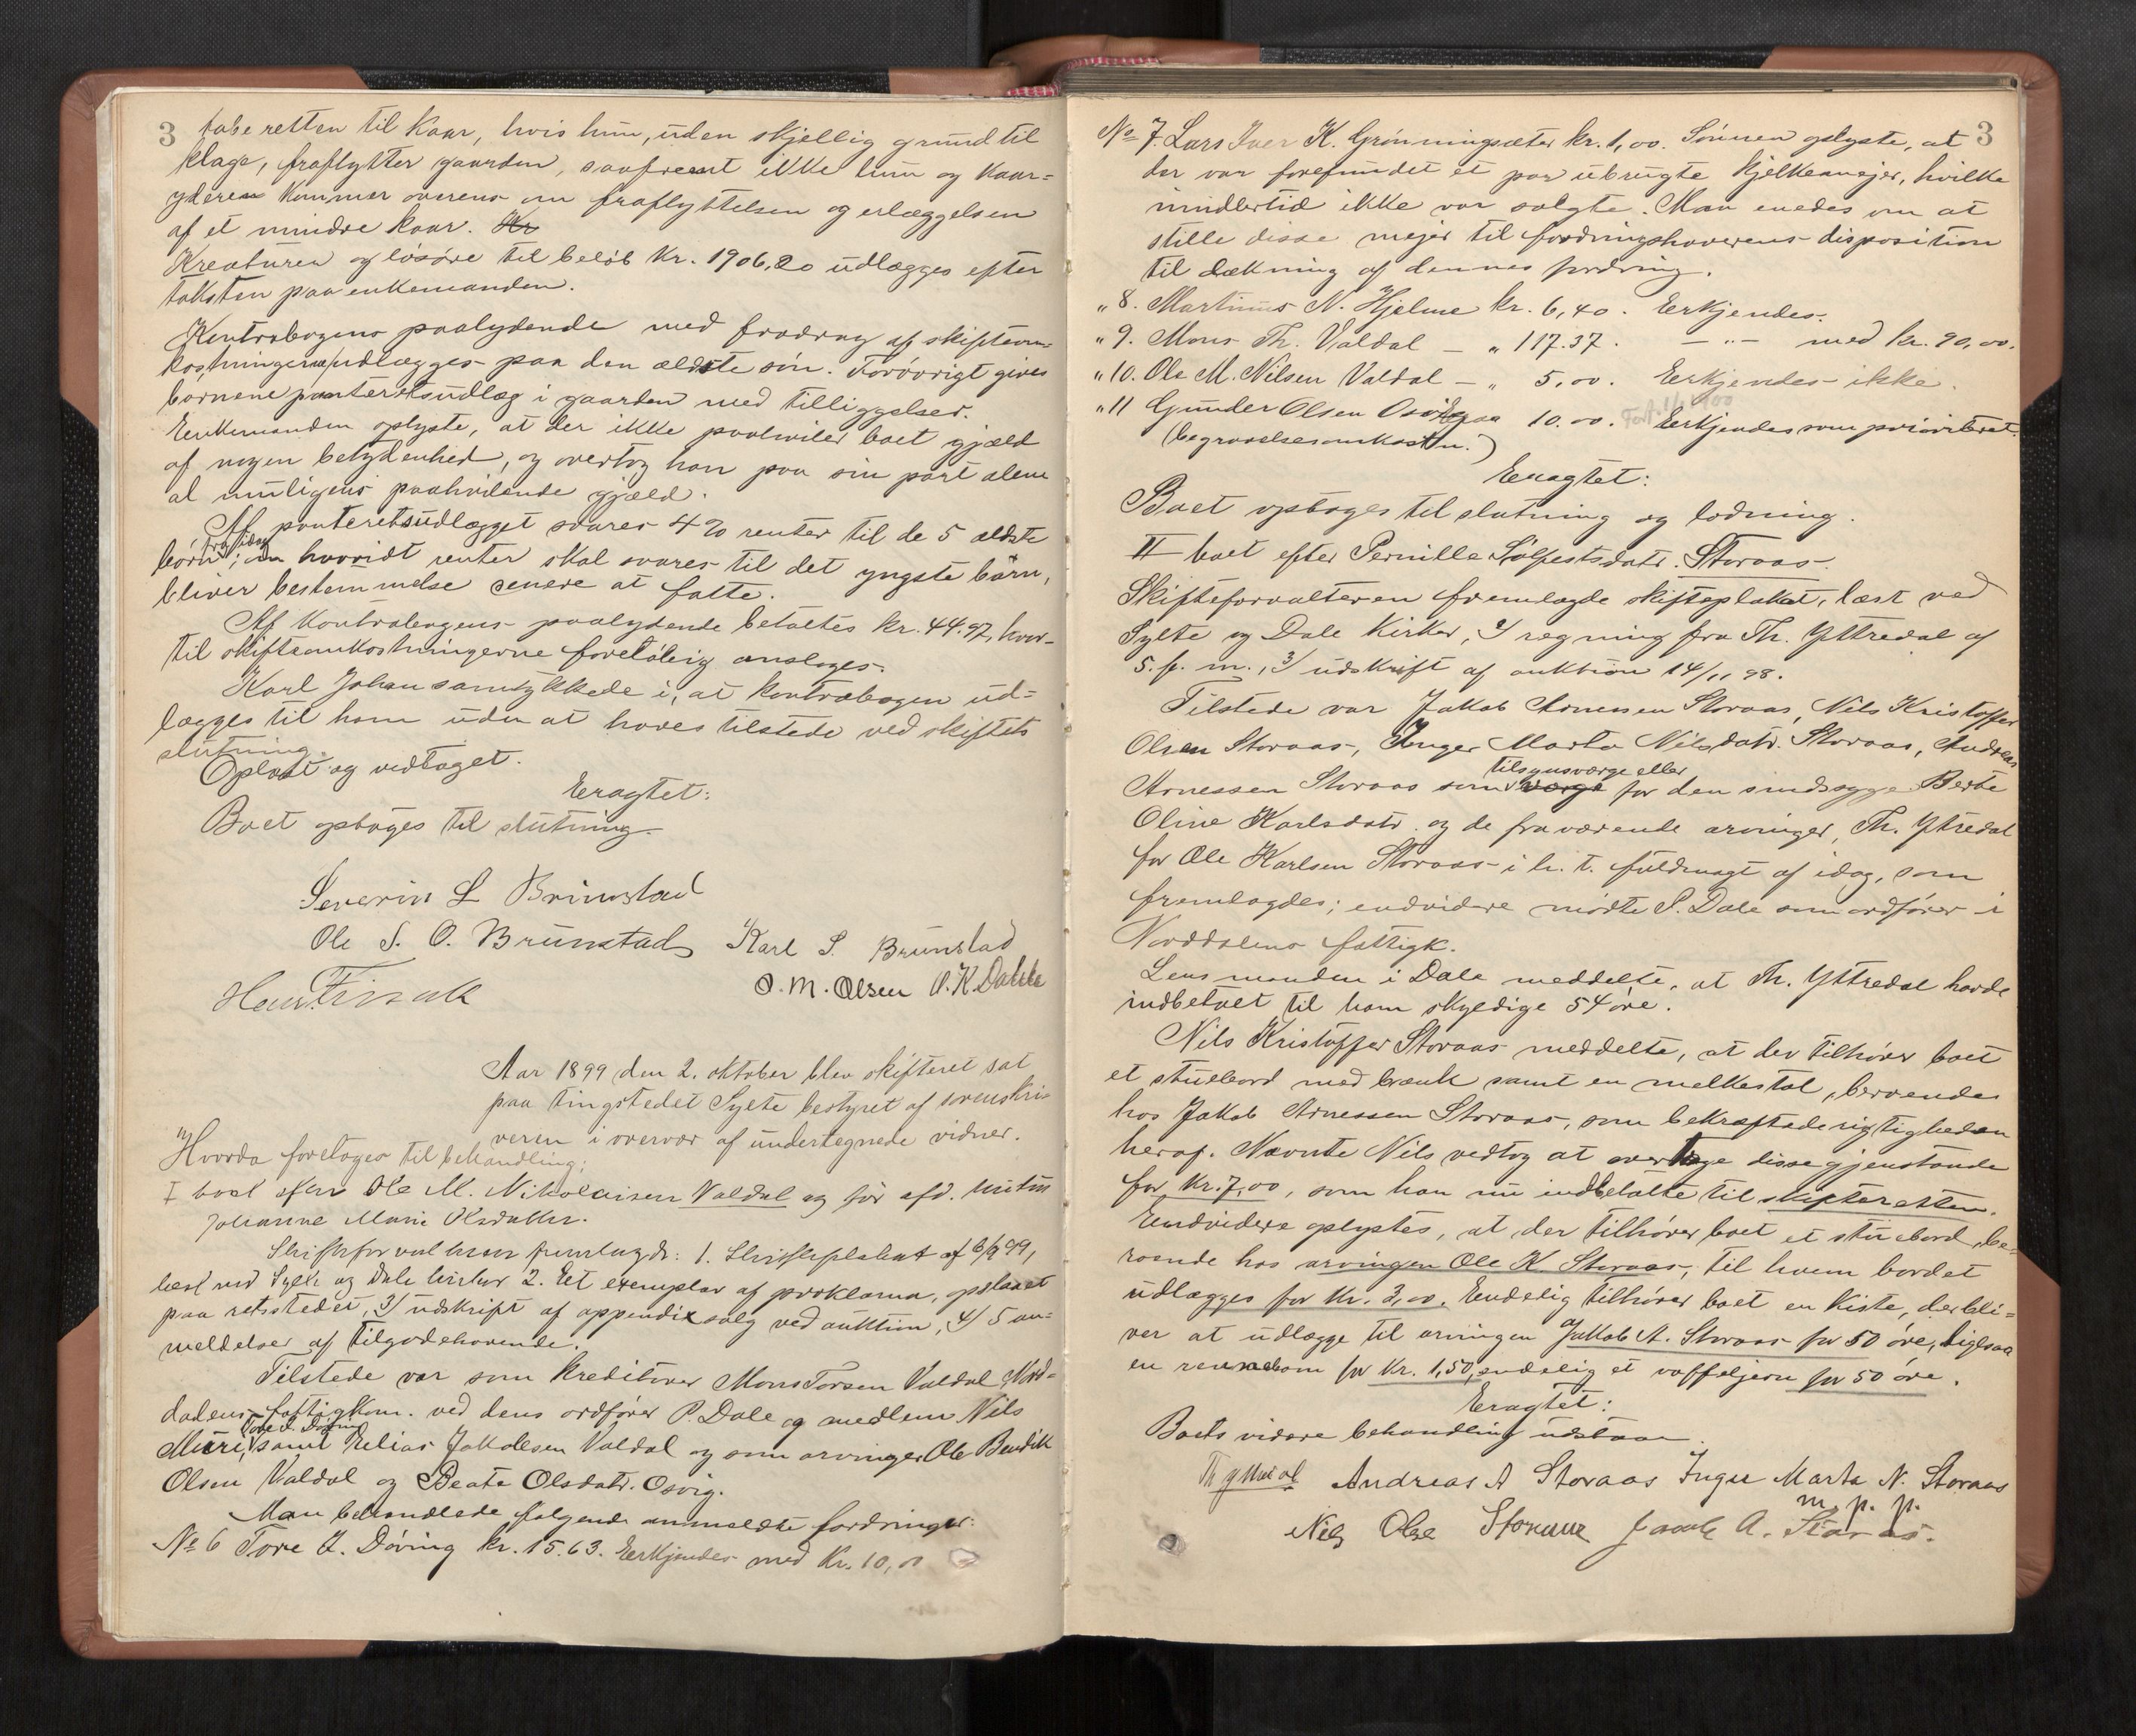 3
tabe retten til Kaar, hvis hun, uden skjellig grund til
klage, fraflytter gaarden, saafremt ikke hun og kaar=
yderen kommer overens om fraflyttelsen og erlæggelsen
af et mindre kaar. Kr
Kreaturer og løsøre til beløb Kr. 1906,20 udlægges efter
taksten paa enkemanden.
Kontrabogens paalydende med fradrag af skifteom-
kostningerne udlægges paa den ældste søn. Forøvrigt gives
børnene panteretsudlæg i gaarden med tilliggelser.
Enkemanden oplyste, at der ikke paahviler boet gjæld
af nogen betydenhed, og overtog han paa sin part alene
al muligens paahvilende gjæld.
Af panteretsudlægget svares 4 % renter til de 5 ældste
børn fra idag; om hvorvidt renter skal svares til det yngste barn,
bliver bestemmelse senere at fatte.
Af kontrabogens paalydende betaltes kr. 44.97, hvor-
til skifteomkostningerne foreløbig ansloges.
Karl Johan samtykkede i, at kontrabogen ud=
lægges til ham uden at haves tilstede ved skiftets
slutning.
Oplæst og vedtaget.
Eragtet:
Boet optages til slutning.
Severin L Brunstad
Ole S. O. Brunstad Karl S. Brunstad
O. M. Olsen O. K. Dahle
Aar 1899 den 2. oktober blev skifteret sat
paa tingstedet Sylte bestyret af sorenskri-
veren i overvær af undertegnede vidner.
Hvorda foretoges til behandling:
I boet efter Ole M. Nikolaisen Valdal og før afd. hustru
Johanne Marie Olsdatter.
Skifteforvalteren fremlagde: 1. Skifteplakat af 6/9 99,
læst ved Sylte og Dale kirker 2. Et exemplar af proklama, opslaaet
paa retsstedet, 3/ udskrift af appendix salg ved auktion, 4/ 5 an=
meldelser af tilgodehavende.
Tilstede var som kreditorer Mons Torsen Valdal, Nord-
dalens fattigkom. ved dens ordfører P. Dale og medlem Nils
Muri, Tore J. Døving samt Elias Jakobsen Valdal og som arvinger Ole Bendik
Olsen Valdal og Beate Olsdatr. Osvig.
Man behandlede følgende anmeldte fordringer:
No 6 Tore J. Døving kr. 15.63. Erkjendes med Kr. 10,00
3
No 7. Lars Iver K. Grønningsæter kr. 1,00. Sønnen oplyste, at
der var forefundet et par ubrugte kjelkemejer, hvilke
imidlertid ikke var solgte. Man enedes om at
stille disse mejer til fordringshaverens disposition
til dækning af dennes fordring.
" 8. Martinus N. Hjelme kr. 6,40. Erkjendes.
" 9. Mons Th. Valdal — " 117.37. — " — med kr. 90,00.
" 10. Ole M. Nilsen Valdal — " 5,00. Erkjendes ikke.
" 11 Gunder Olsen Osvig paa 10.00. Erkjendes som prioriteret.
(begravelsesomkostn.)
Eragtet:
Boet optages til slutning og lodning.
II boet efter Pernille Sølfestsdatr. Storaas.
Skifteforvalteren fremlagde skifteplakat, læst ved
Sylte og Dale kirker, 2/ regning fra Th. Yttredal af
5. f. m., 3/ udskrift af auktion 14/11 98.
Tilstede var Jakob Arnessen Storaas, Nils Kristoffer
Olsen Storaas, Inger Marta Nilsdatr. Storaas, Andreas
Arnessen Storaas som tilsynsværge eller værge for den sindssyge Berte
Oline Karlsdatr. og de fraværende arvinger, Th. Yttredal
for Ole Karlsen Storaas i h. t. fuldmagt af idag, som
fremlagdes; endvidere mødte P. Dale som ordfører i
Norddalens fattigk.
Lensmanden i Dale meddelte, at Th. Yttredal havde
indbetalt til ham skyldige 54 øre.
Nils Kristoffer Storaas meddelte, at der tilhører boet
et stuebord med bænk samt en melkestol, beroende
hos Jakob Arnessen Storaas, som bekræftede rigtigheden
heraf. Nævnte Nils vedtog at overtage disse gjenstande
for Kr. 7,00, som han nu indbetalte til skifteretten.
Endvidere oplystes, at der tilhører boet et stuebord, be-
roende hos arvingen Ole K. Storaas, til hvem bordet
udlægges for Kr. 3,00. Endelig tilhører boet en kiste, der bli=
ver at udlægge til arvingen Jakob A. Storaas for 50 øre, ligesaa
en for Kr. 1,50, endelig et vaffeljern for 50 øre.
Eragtet:
Boets videre behandling udstaar.
Th Yttredal Andreas A Storaas Inger Marta N. Storaas
m. p. p.
Nils Olse Storaas Jacob A. Storaas.